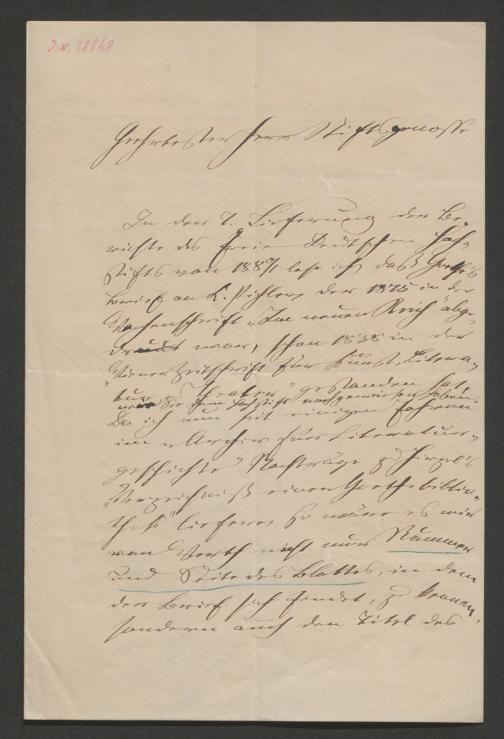 J.N. 28868
Geehrtester Herr Stiftsgenosse
In der 1. Lieferung der Be-
richte des Freien Deutschen Hoch-
stifts von 188 lese ich, daß Goethe's
Brief an C. Pichler, der 1875 in der
Wochenschrift „Im neuen Reich" abge-
druckt war, schon 1838 in der
„Wiener Zeitschrift für Kunst, Litera-
tur, Theater" gestanden hat,
wie Sie dem Hochstift nachgewiesen haben.
Da ich nun seit einigen Jahren
im „Archiv für Literatur-
geschichte" Nachträge zu Hirzel's
„Verzeichniß einer Goethebiblio-
thek" liefere, so wäre es mir
von Werth nicht nur Nummer
und Seite des Blattes, in dem
der Brief sich findet, zu kennen,
sondern auch den Titel des